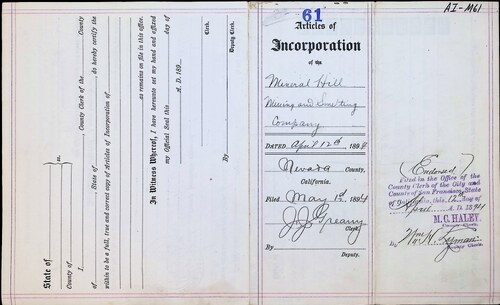 State of
County of
ss.
I, County Clerk of the County
of , State of , do hereby certify the
within to be a full, true and correct copy of Articles of Incorporation of
as remains on file in this office.
In Witness Whereof, I have hereunto set my hand and affixed
my Official Seal this day of
A. D. 189
Clerk.
By
Deputy Clerk.
61
Articles of
Incorporation
of the
Mineral Hill
Mining and Smelting
Company
DATED April 12th, 1894
Nevada County,
California.
Filed May 1st, 1894
J. J. Greany
Clerk.
By
Deputy.
AI-M61
(Endorsed)
Filed in the Office of the
County Clerk of the City and
County of San Francisco, State
of California, this day of
April A.D. 1894
M. C. HALEY,
County Clerk.
By Wm. Lyman
Deputy Clerk.